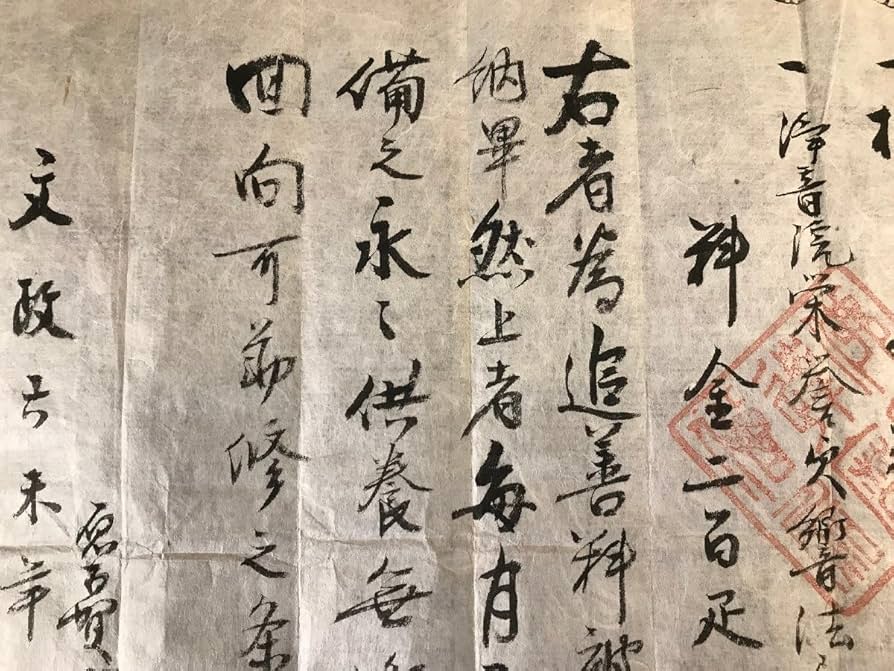 一 浄音院栄誉欠響音法
料金二百疋
右者為追善料被
納畢然上者毎月
備之永々供養無
回向可勤修之条
文政六未年